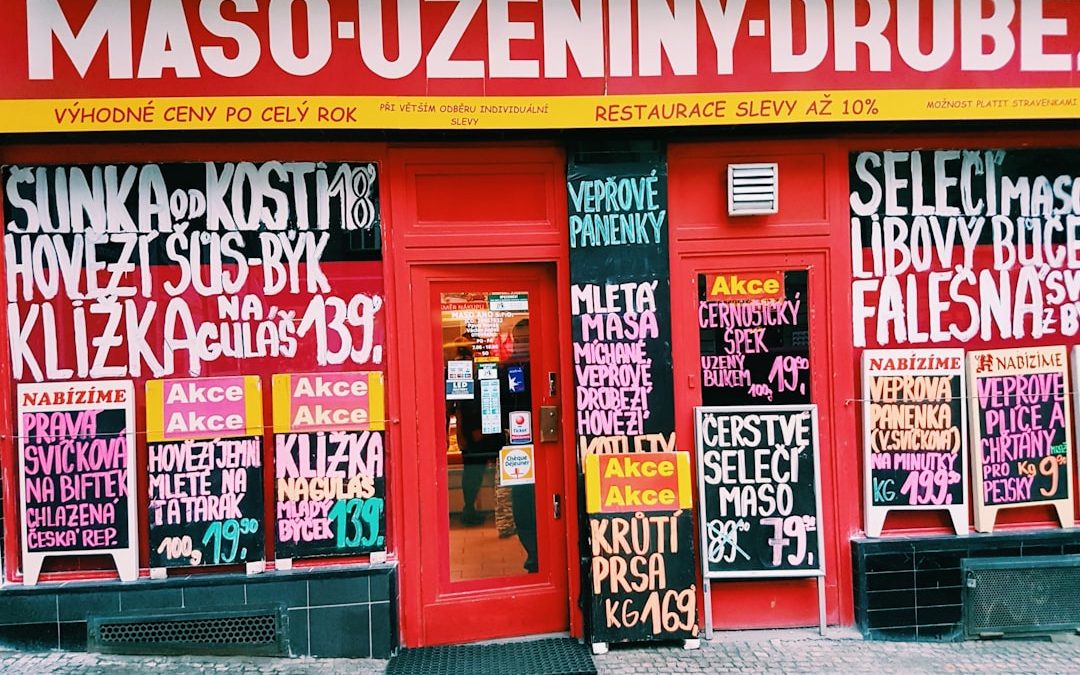 MASO-UZENINY-DRŮBE
VÝHODNÉ CENY PO CELÝ ROK
PŘI VĚTŠÍM ODBĚRU INDIVIDUÁLNÍ
SLEVY
RESTAURACE SLEVY AŽ 10%
MOŽNOST PLATIT STRAVENKAMI
ŠUNKA OD KOSTI 18
HOVĚZÍ ŠŮS-BÝK
KLIŽKA NA GULÁŠ 139,
NABÍZÍME
PRAVÁ
SVÍČKOVÁ
NA BIFTEK
CHLAZENÁ
ČESKÁ REP.
Akce
Akce
HOVĚZÍ JEMNĚ
MLETÉ NA
TATARÁK
100g 19,90
Akce
Akce
KLIŽKA
NA GULÁŠ
MLADÝ
BÝČEK 139,
MASO AND s.r.o.
LED
Ticket
Chèque
Déjeuner
VEPŘOVÉ
PANENKY
MLETÁ
MASA
MÍCHANÉ
VEPŘOVÉ
DRŮBEŽÍ
HOVĚZÍ
KOTLETY
Akce
Akce
KRŮTÍ
PRSA
KG 169,
Akce
ČERNOŠICKÝ
ŠPEK
UZENÝ
BUKEM 100g 19,90
ČERSTVÉ
SELEČÍ
MASO
89,90 79,
SELEČÍ MASO
LIBOVÝ BŮČE
FALEŠNÁ SV
Z B
NABÍZÍME
VEPŘOVÁ
PANENKA
(V. SVÍČKOVÁ)
NA MINUTKY
KG. 199,
NABÍZÍME
VEPŘOVÉ
PLÍCE A
CHŘTÁNY
PRO KG 9,90
PEJSKY